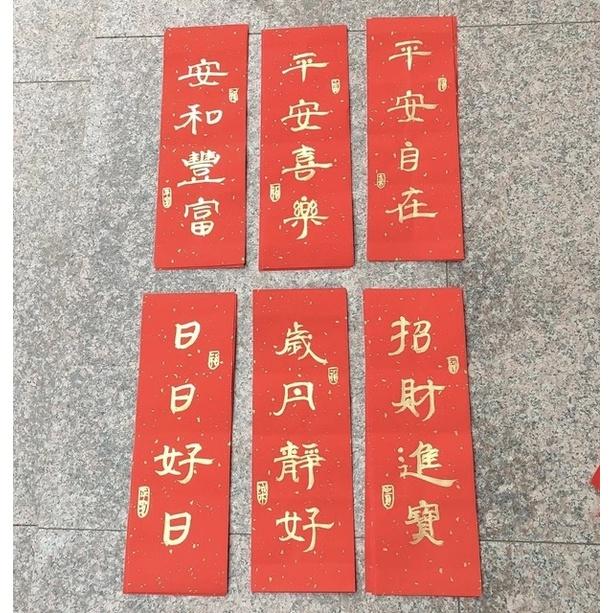 安和豐富
平安喜樂
平安自在
日日好日
歲月靜好
招財進寶